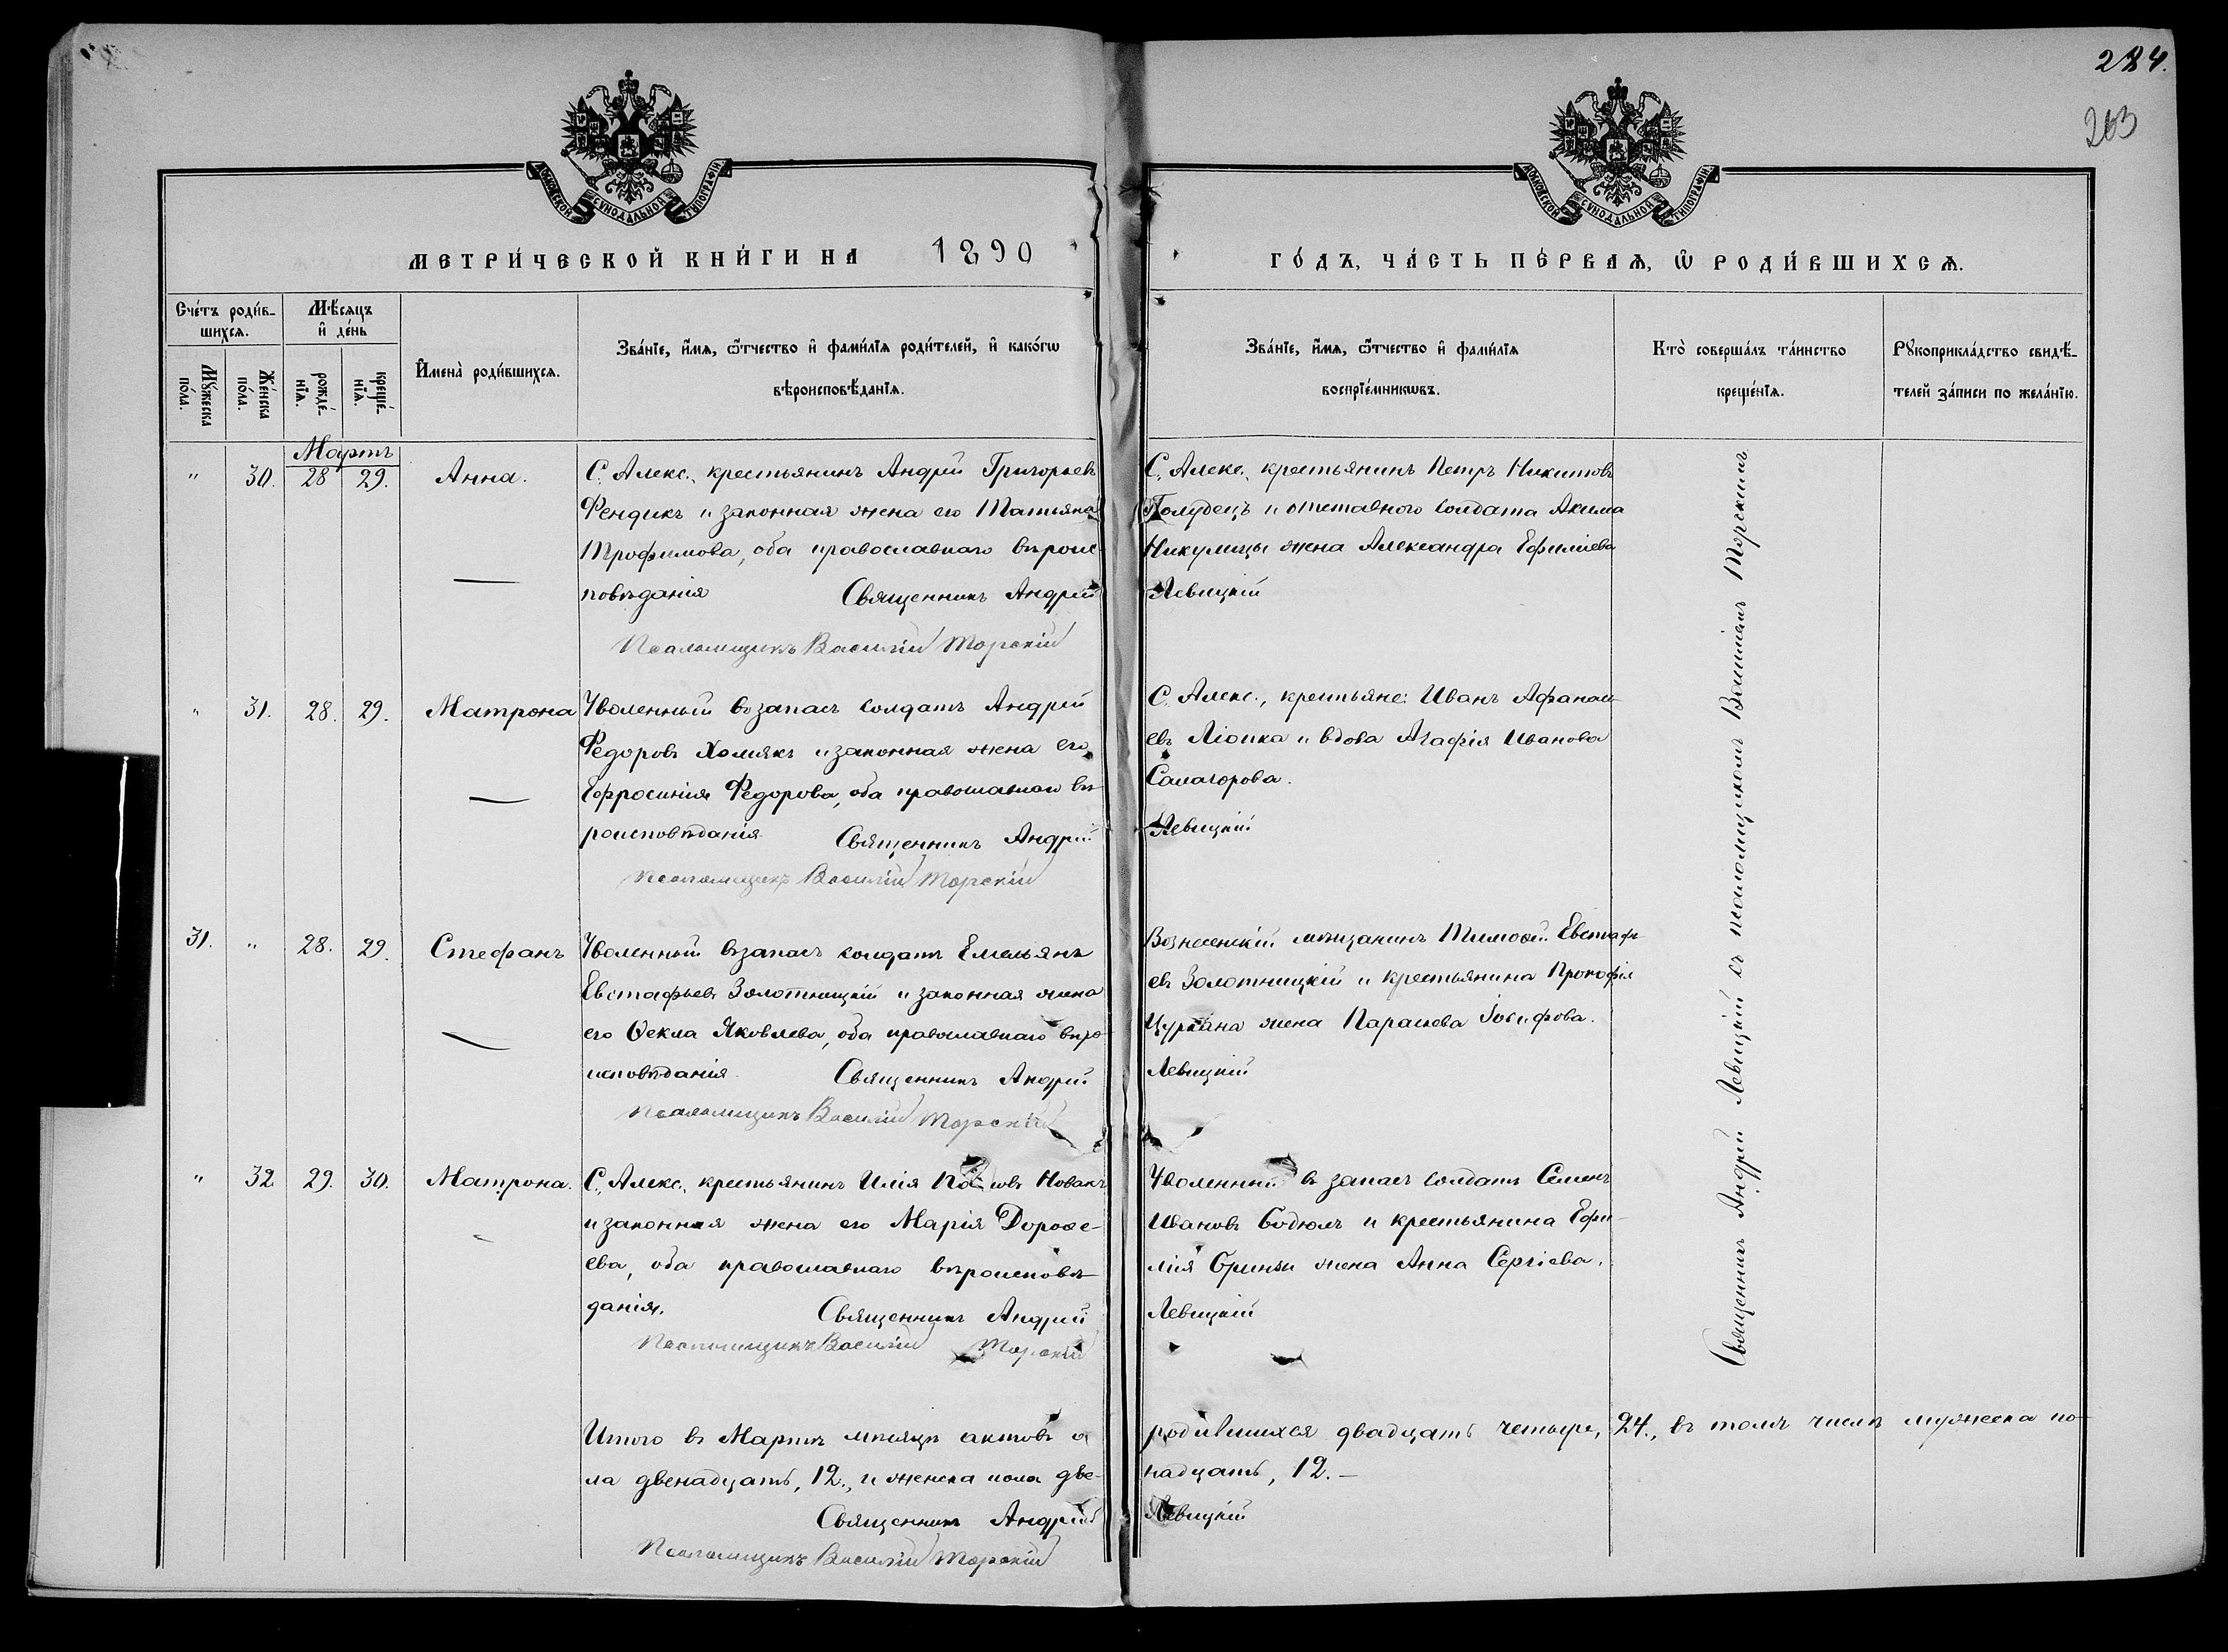 284.
203
МОСКОВСКОЙ СУНОДАЛЬНОЙ ТИПОГРАФІИ
МОСКОВСКОЙ СУНОДАЛЬНОЙ ТИПОГРАФІИ
МЕТРИ́ЧЕСКОЙ КНИ́ГИ НА 1890
ГО́ДЪ, ЧА́СТЬ ПЕ́РВАѦ, Ѿ РОДИ́ВШИХСѦ.
Сче́тъ роди́в-
шихсѧ.
Мѣ́сѧцъ
и҆ де́нь
Му́жеска
по́ла.
Же́нска
по́ла.
рожде́-
нїѧ.
креще́-
нїѧ.
И҆мена̀ роди́вшихсѧ.
Зва́нїе, и҆́мѧ, ѻ҆́тчество и҆ фами́лїѧ роди́телей, и҆ како́гѡ
вѣроисповѣ́данїѧ.
Зва́нїе, и҆́мѧ, ѻ҆́тчество и҆ фами́лїѧ
воспрїе́мникѡвъ.
Кто̀ соверша́лъ та́инство
креще́нїѧ.
Рꙋкоприкла́дство свидѣ́-
телей за́писи по жела́нїю.
Мартъ
" 30. 28 29. Анна.
С. Алекс., крестьянинъ Андрей Григорьевъ
Фендикъ и законная жена его Татьяна
Трофимова, оба православнаго вѣроис-
повѣданія Священникъ Андрей
Псаломщикъ Василій Торскій
С. Алекс., крестьянинъ Петръ Никитовъ
Полудецъ и отставного солдата Акима
Никулицы жена Александра Ефиміева
Левицкій
" 31. 28. 29. Матрона
Уволенный въ запасъ солдатъ Андрей
Федоровъ Хомякъ и законная жена его
Ефросинія Федорова, оба православнаго вѣ-
роисповѣданія Священникъ Андрей
Псаломщикъ Василій Торскій
С. Алекс., крестьяне: Иванъ Афанась-
евъ Ліопка и вдова Агафія Иванова
Самагорова.
Левицкій
31. " 28. 29. Стефанъ
Уволенный въ запасъ солдатъ Емельянъ
Евстафьевъ Золотницкій и законная жена
его Ѳекла Яковлева, оба православнаго вѣро-
исповѣданія Священникъ Андрей
Псаломщикъ Василій Торскій
Вознесенскій мѣщанинъ Тимоѳей Евстафь-
евъ Золотницкій и крестьянина Прокофія
Цуркана жена Параскева Іосифова.
Левицкій
" 32. 29. 30. Матрона.
С. Алекс., крестьянинъ Илія Новакъ
и законная жена его Марія Дороѳе-
ева, оба православнаго вѣроисповѣ-
данія. Священникъ Андрей
Псаломщикъ Василій Торскій
Уволенный въ запасъ солдатъ Семенъ
Ивановъ Бодюлъ и крестьянина Ефи-
мія жена Анна Сергіева.
Левицкій
Священникъ Андрей Левицкій съ псаломщикомъ Василіемъ Торскимъ
Итого въ Мартѣ мѣсяцѣ актовъ о родившихся двадцать четыре, 24., въ томъ числѣ мужеска по-
ла двенадцать, 12., и женска пола две- надцать, 12.
Священникъ Андрей Левицкій
Псаломщикъ Василій Торскій